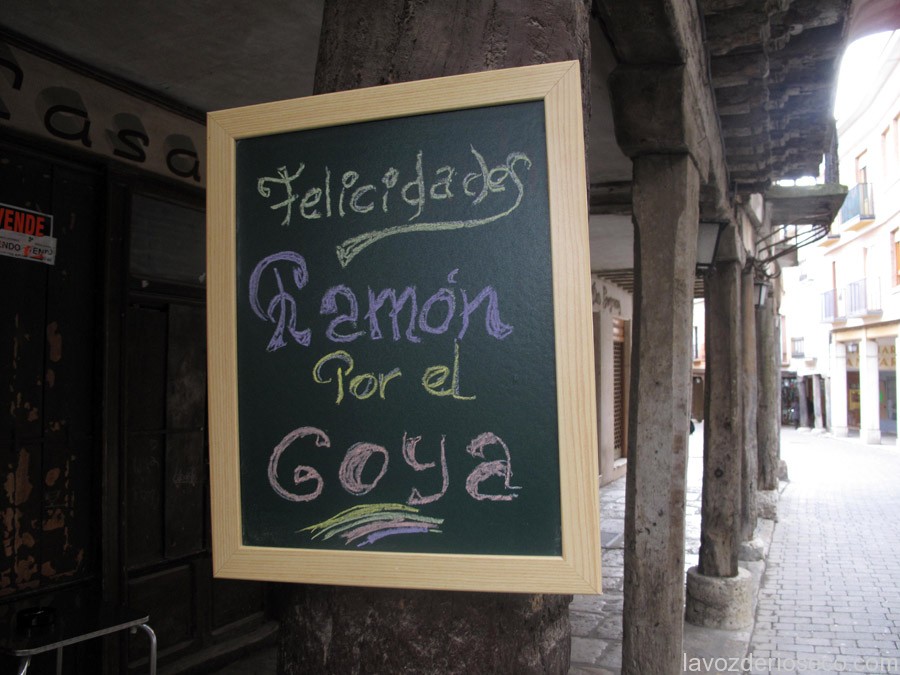 Casa
VENDE
VENDO
Felicidades
Ramón
Por el
Goya
lavozderioseco.com